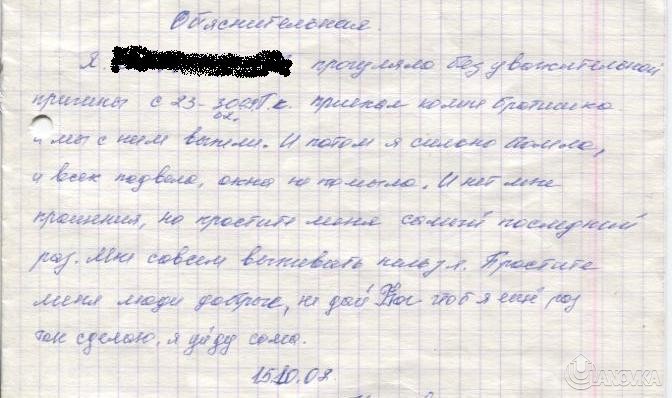 Объяснительная.
Я. прогуляла без уважительной
причины с 23-30 Т.к. приехал ко мне братишка
и мы с ним выпили. И потом я сильно болела,
и всех подвела, окна не помыла. И нет мне
прощения, но простите меня самый последний
раз. Мне совсем выпивать нельзя. Простите
меня люди добрые, не дай чтоб я ещё раз
так сделаю, я уйду сама.
15.10.08.
ULANOVKA